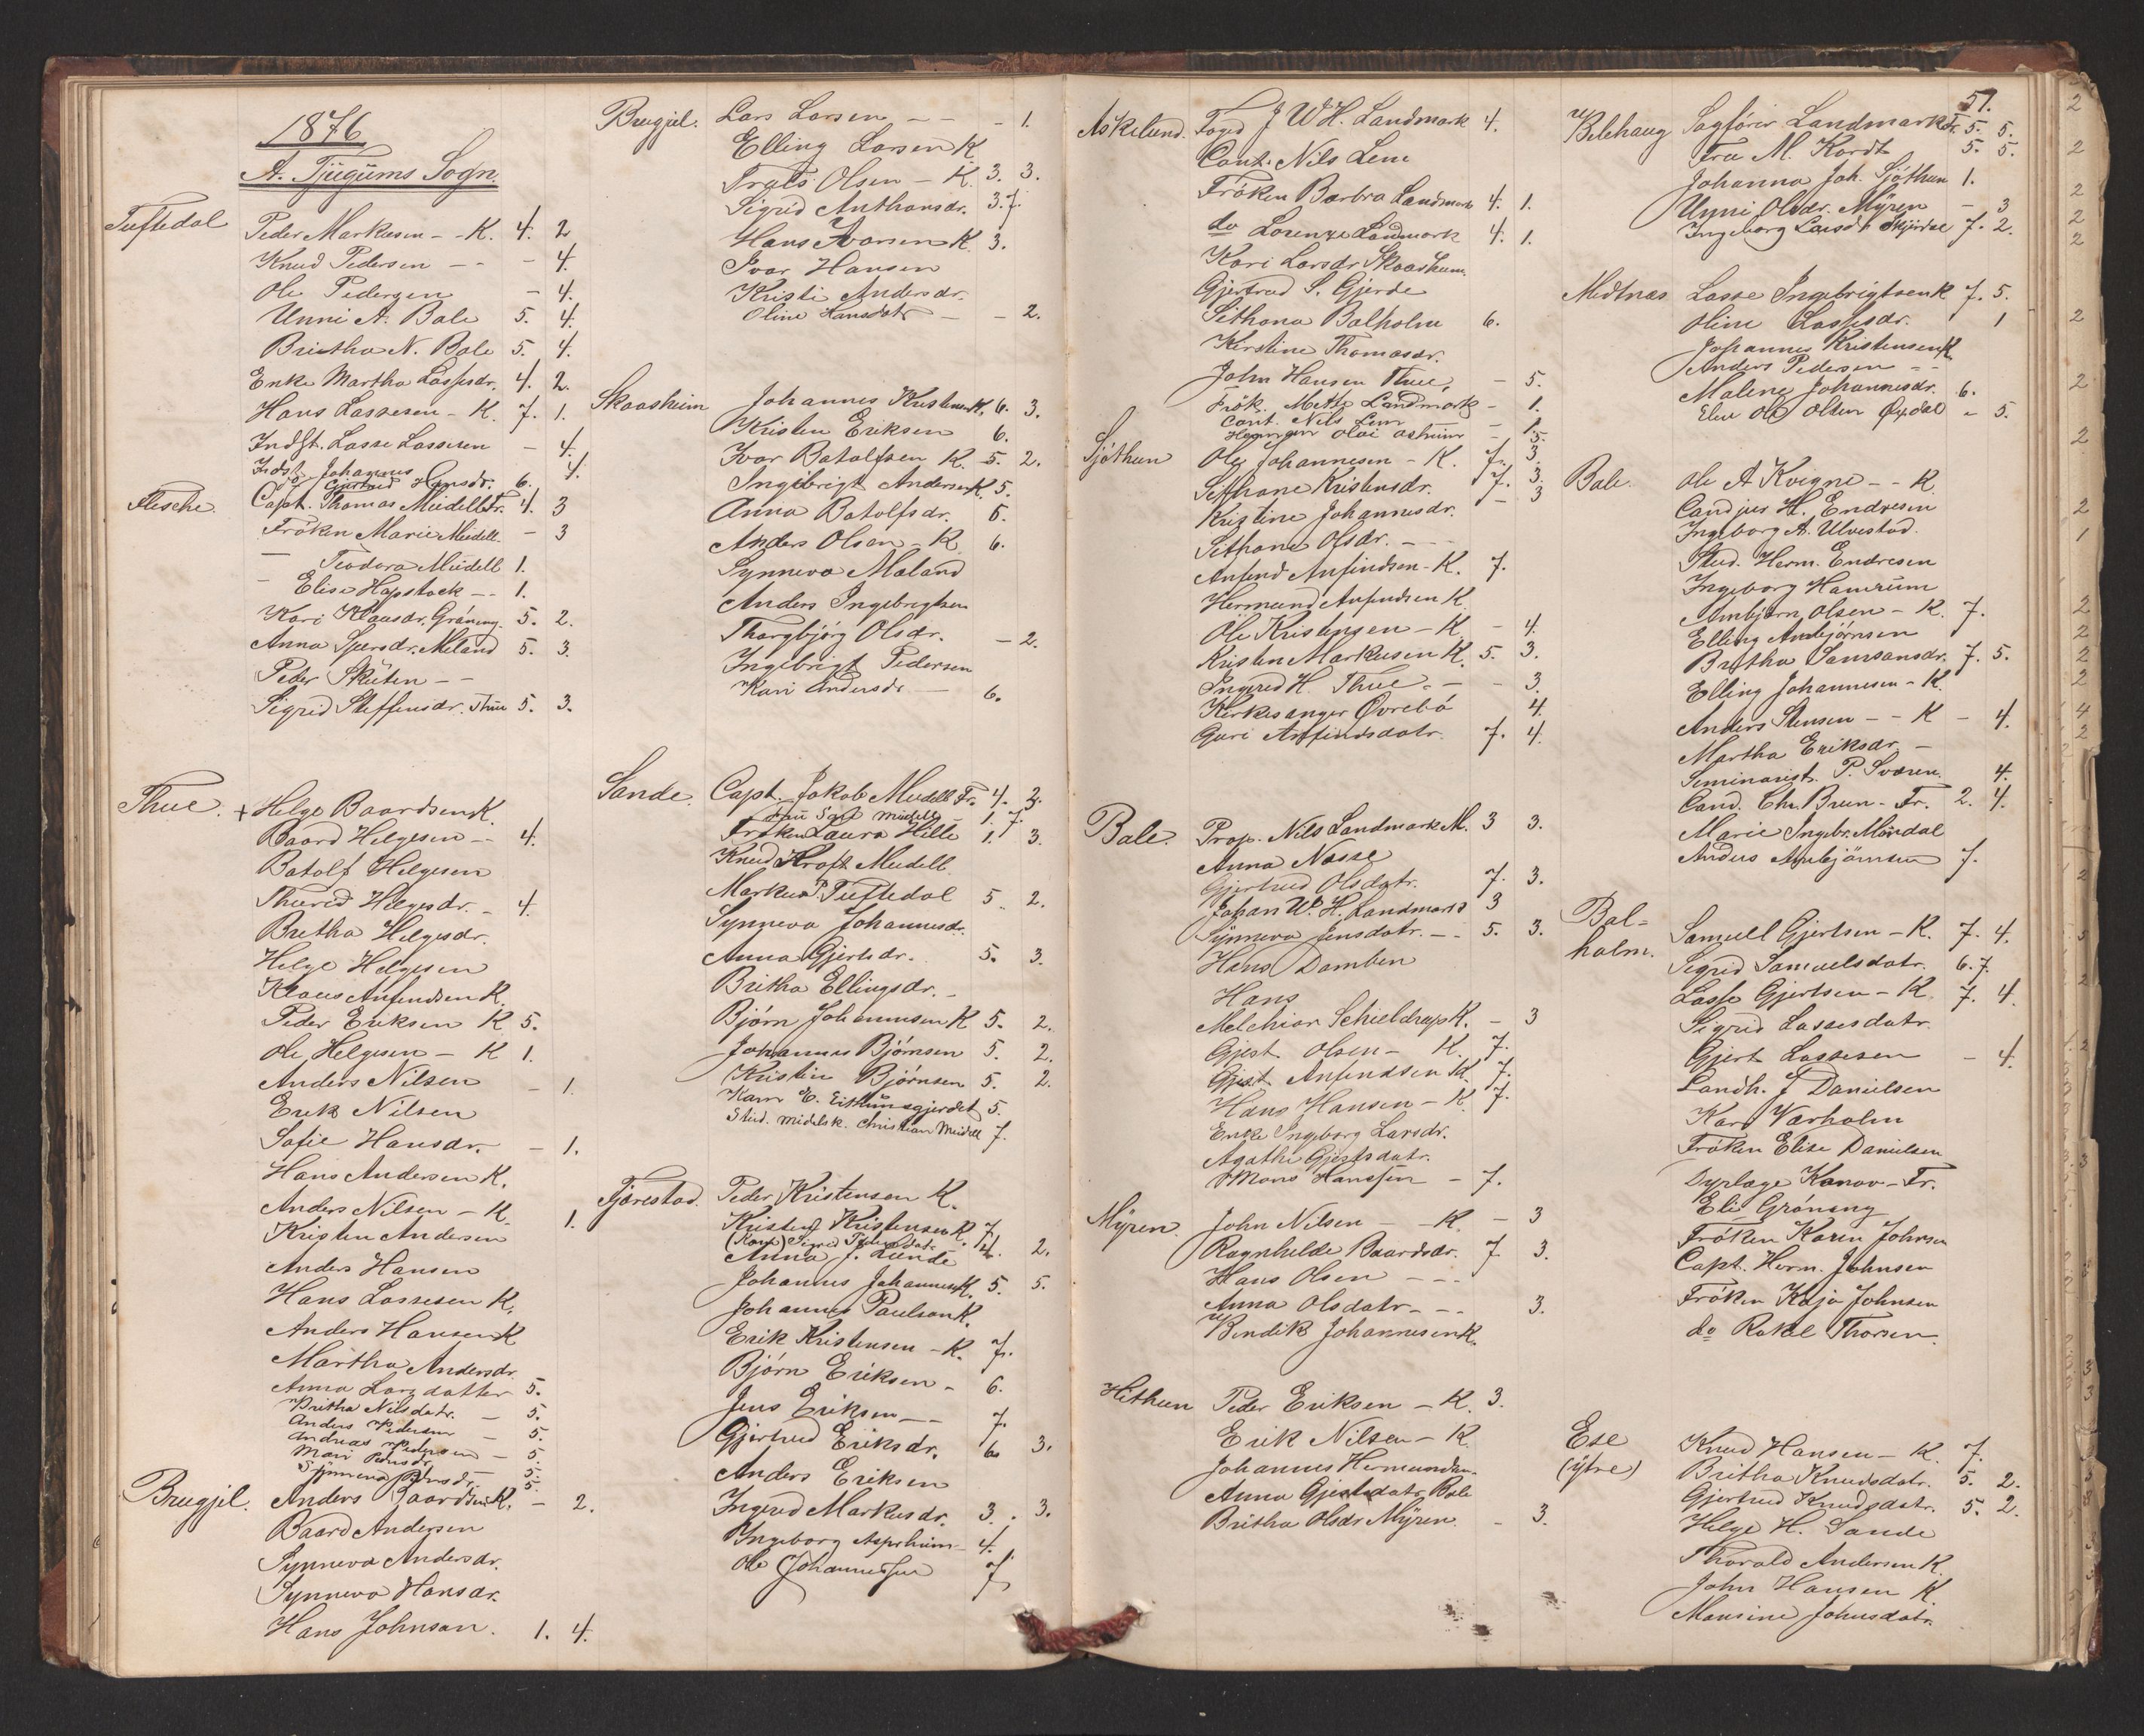 1876
A. Tjugums Sogn.
Tuftedal Peder Markusen - - K. 4. 2
Knud Pedersen - - - 4.
Ole Pedersen - 4.
Unni A. Bale 5. 4.
Britha N. Bale 5. 4.
Enke Martha Lassesdr. 4. 2.
Hans Lassesen - K. 7. 1.
Indst. Lasse Lassesen - 4.
Indst. Johannes 4.
Gjertrud Hansdr. 6.
Flesche. Capt. Thomas Meidell Fr. 4. 3
Fröken Marie Meidell - 3
— Teodora Meidell 1.
- Elise Hapstock - - 1.
Kari Klausdr. Gröning. 5. 2.
Anna Spersdr. Meland 5. 3.
Peder Skuten - -
Sigrid Steffensdr. Thue 5. 3.
Thue. + Helge Baardsen K.
Baard Helgesen - - 4.
Batolf Helgesen
Thurid Helgesdr. - 4.
Bretha Helgesdr.
Helge Helgesen
Klaus Anfindsen K.
Peder Eriksen K 5.
Ole Helgesen - K 1.
Anders Nilsen - 1.
Erik Nilsen
Sofie Hansdr. - 1.
Hans Andersen K.
Anders Nilsen - K. 1.
Kristen Andersen
Anders Hansen
Hans Lassesen K.
Anders Hansen K
Martha Andersdr.
Anna Larsdatter 5.
Britha Nilsdatr. - 5.
Anders Pedersen - 5.
Andreas Pedersen - 5.
Mari Pedersdr. - 5.
Synneva 5.
Brugjel. Anders Baardsen K. - 2.
Baard Andersen
Synneva Andersdr.
Synneva Hansdr.
Hans Johnsen. 1. 4.
Brugjel. Lars Larsen - - - 1.
Elling Larsen K
Truls Olsen - K. 3. 3.
Sigrid Anthonsdr. 3.7.
Hans Ivarsen K. 3.
Ivar Hansen
Kristi Andersdr.
Oline Hansdatr - - 2.
Skaasheim Johannes Kristensen K. 6. 3.
Kristen Eriksen 6.
Ivar Batolfsen K. 5. 2.
Ingebrigt Andersen K. 5.
Anna Batolfsdr. 6.
Anders Olsen - K. 6.
Synneva Maland
Anders Ingebrigtsen
Thorgbjörg Olsdr. - 2.
Ingebrigt Pedersen
Kari Andersdr - 6.
Sande. Capt. Jakob Meidell Fr. 4. 3.
Fru Meidell - 1. 7.
Fröken Laura Hille 1. 3.
Knud Kroft Meidell.
Markus P. Tuftedal 5.. 2.
Synneva Johannesdr.
Anna Gjertsdr. 5. 3.
Britha Ellingsdr. -
Björn Johannesen K 5. 2.
Johannes Björnsen 5. 2.
Kristin Björnsen 5. 2.
Karn E. Eithunsgjerdet 5.
Stud. Midelsk. Christian Meidell 7.
Tjærestad. Peder Kristensen K.
Kristen Kristensen K. 7
(Kone) Sigrid Pedersdatr
Anna J. Lunde 4. 2.
Johannes Johannesen K. 5. 5.
Johannes Paulsen K.
Erik Kristensen - K. 7.
Björn Eriksen - 6.
Jens Eriksen - - 7.
Gjertrud Eriksdr. 6. 3.
Anders Eriksen
Ingerid Markusdr. 3. . 3.
Ingeborg Asperheim - 4.
Ole Johannessen 7
Askelund. Foged J W H. Landmark 4.
Cont. Nils Lem
Fröken Barbra Landmark 4. 1.
do Lorenze Landmark 4. 1.
Kari Larsdr Skaasheim.
Gjertrud S. Gjerde
Sithona Balholm 6.
Kerstine Thomasdr.
John Hansen Thue, - 5.
Frök. Mette Landmark - 1.
Cont. Nils Lem - 1.
Herman Olai - 5.
Sjöthun Ole Johannesen - K. 7. 3.
Sithone Kristensdr. 7. 3.
Kristine Johannesdr. - 3
Sithone Olsdr. - - -
Anfind Anfindsen - K. 7.
Hermund Anfindsen K.
Ole Kristensen - K. - 4.
Kristen Markusen K. 5. 3.
Ingerid H. Thue. - - 3.
Kirkesanger Øvrebö 4.
Guri Anfindsdatr. 7. 4.
Bale. Prop. Nils Landmark M. 3 3.
Anna Nasse
Gjertrud Olsdatr. 7. 3.
Johan W. H. Landmark 3
Synneva Jensdatr. - - 5. 3.
Hans Damben
Hans
Melchior Schieldrop K. - 3
Gjest Olsen - K. 7.
Gjest Anfindsen K. 7.
Hans Hansen - K. 7.
Enke Ingeborg Larsdr.
Agathe Gjertsdatr.
Mons Hanssen - 7.
Mÿren. John Nilsen - - K. - 3
Ragnhilde Baardsdr. 7 3.
Hans Olsen - - -
Anna Olsdatr - - - 3.
Bendik Johannesen K.
Hithun Peder Eriksen - K. 3.
Erik Nilsen - K.
Johannes Hermundsn.
Anna Gjertsdatr. Bale
Britha Olsdr Mÿren. - 3.
51.
Belehaug Sagförer Landmark Fr. 5. 5.
Fru M. Kordt 5. 5.
Johanna Joh. Sjöthun 1.
Unni Olsdr. Mÿren - 3
Ingeborg Larsdr Skjördal 7. 2.
Midtnæs Lasse Ingebrigtsen K 7. 5.
Oline Lassesdr. 1
Johannes Kristensen K
Anders Pedersen - -
Malene Johannesdr. 6.
Elev Ole Olsen Øxdal - 5.
Bale. Ole A Kvigne - - K
Candjur H. Endresen
Ingeborg A. Ulvestad.
Stud. Herm. Endresen
Ingeborg Hamrum
Ambjörn Olsen - K. 7.
Elling Ambjörnsen
Britha Samsonsdr. 7. 5.
Elling Johannesen - K.
Anders Stensen - - K - 4.
Martha Eriksdr. -
Seminarist. P. Sværen. 4.
Cand. Chr. Brun - Fr. 2. 4.
Marie Ingebr. Mundal
Anders Ambjörnsen 7.
Bal=
holm. Samuel Gjertsen - K. 7. 4.
Sigrid Samuelsdatr. 6.7.
Lasse Gjertsen - K. 7. 4.
Sigrid Lassesdatr.
Gjert Lassesen - 4.
Landh. J Danielsen
Kari Varholm
Fröken Elise Danielsen
Dyrlæge Kanov - Fr.
Eli Gröneng
Fröken Karen Johnsen
Capt. Herm. Johnsen
Fröken Kaja Johnsen
do Rakel Thorsen.
Ese
(ÿtre) Knud Hansen - K. 7.
Britha Knudsdatr. 5. 2.
Gjertrud Knudsdatr. 5. 2.
Helge H. Sande
Thorald Andersen K.
John Hansen K.
Mansine Johnsdatr.